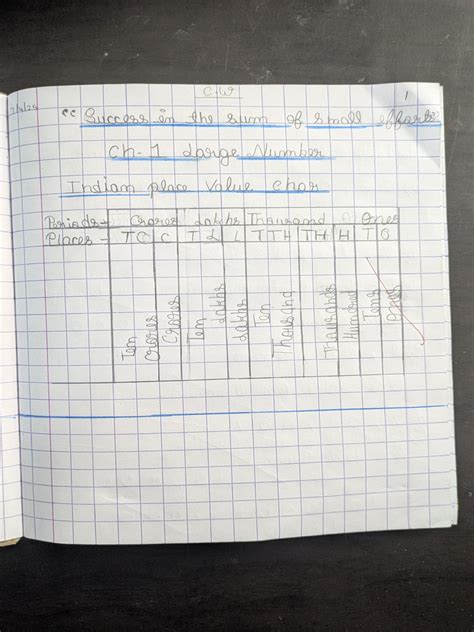 C.W 1
"Success in the sum of small efforts.
Ch-1 Large Number
Indian place Value Char
Periods- Crores Lakhs Thousand Ones
Places - TC C T L L T TH TH H T O
Ten Crores Crores Ten Lakhs Lakhs Ten Thousand Thousands Hundred Tens Ones